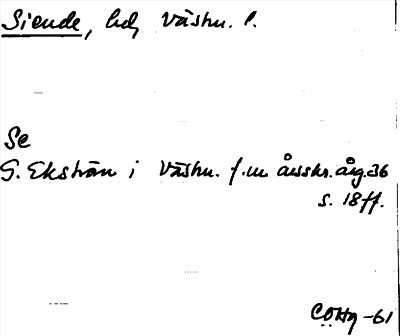 Siende, hd, Västm. l.
Se
G. Ekström i Västm. f.m årsskr. årg. 36
s. 18 ff.
COHg -61